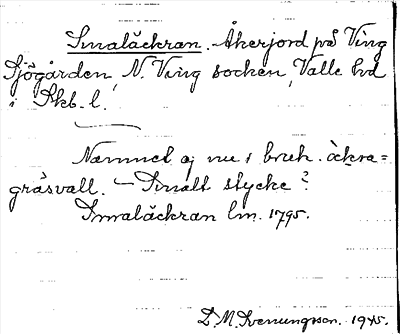 Smaläckran. Åkerjord på Ving
Sjögården, N. Ving socken, Valle hd
i Skb. l.
Namnet ej nu i bruk. äckra=
gräsvall. — Smalt stycke?
Smaläckran lm. 1795.
D. M. Svenungsson. 1945.